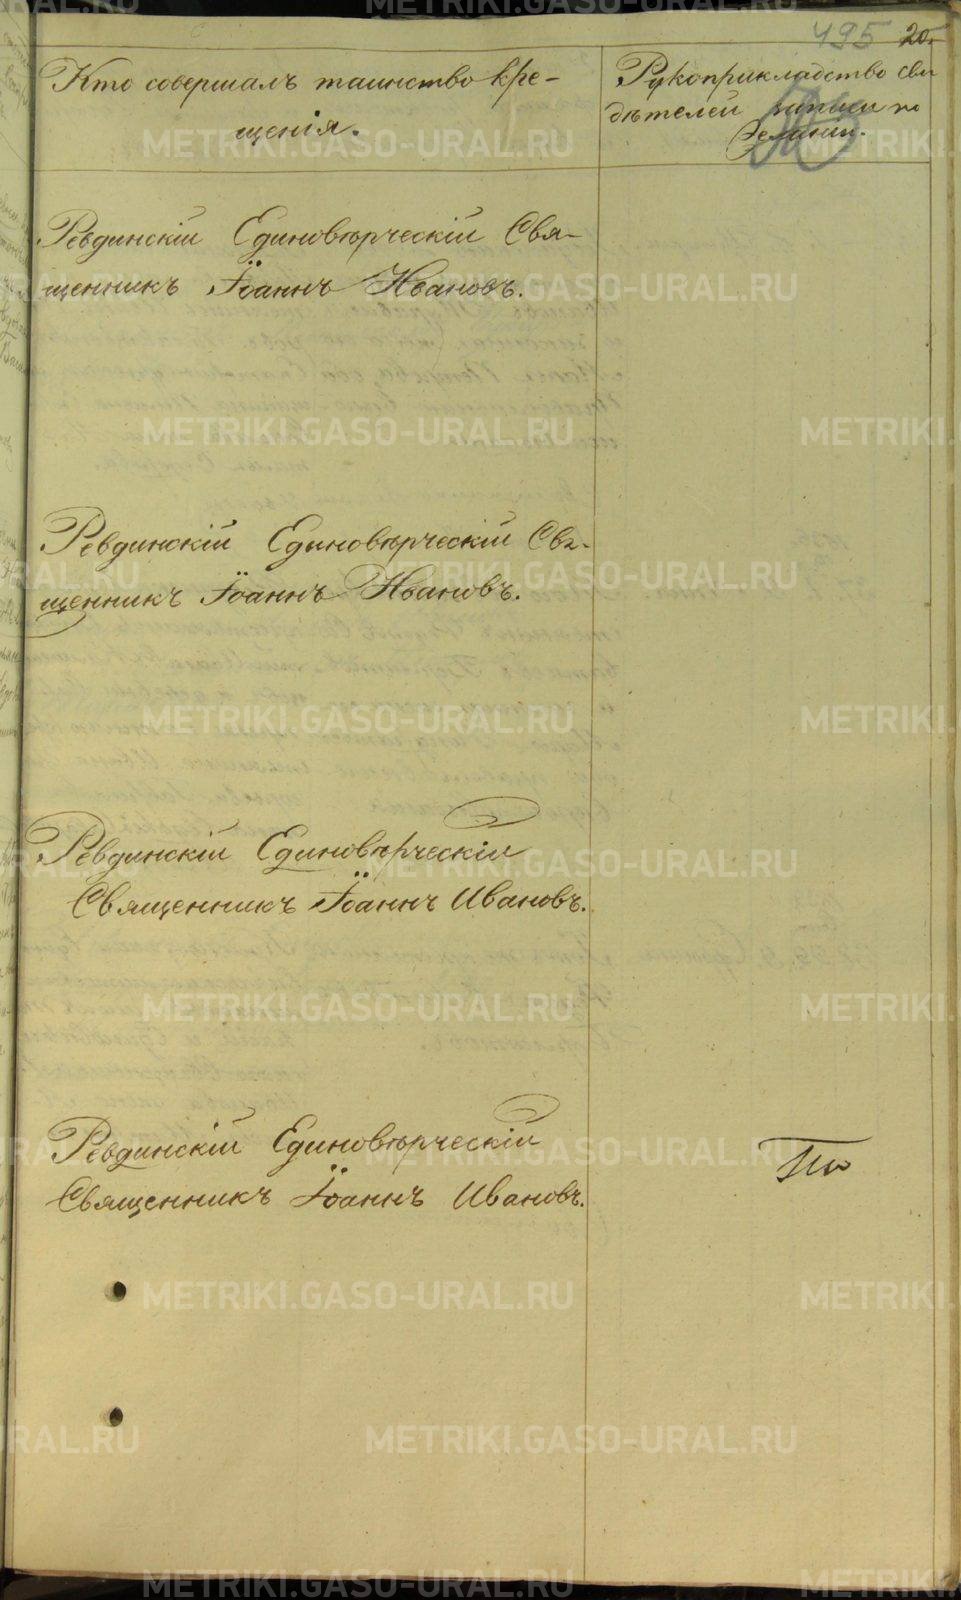 495 20.
Кто совершалъ таинство кре-
щенія.
Рукоприкладство сви
дѣтелей записи по
желанію.
Ревдинскій Единовѣрческій Свя-
щенникъ Іоаннъ Ивановъ.
Ревдинскій Единовѣрческій Свя-
щенникъ Іоаннъ Ивановъ.
Ревдинскій Единовѣрческій
Священникъ Іоаннъ Ивановъ.
Ревдинскій Единовѣрческій
Священникъ Іоаннъ Ивановъ.
METRIKI.GASO-URAL.RU